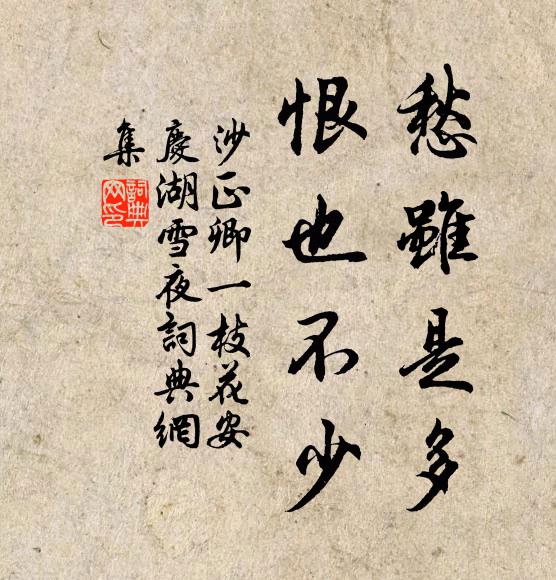 愁雖是多
恨也不少
沙正卿一枝花安
慶湖雪夜詞典網
集
詞典
网印